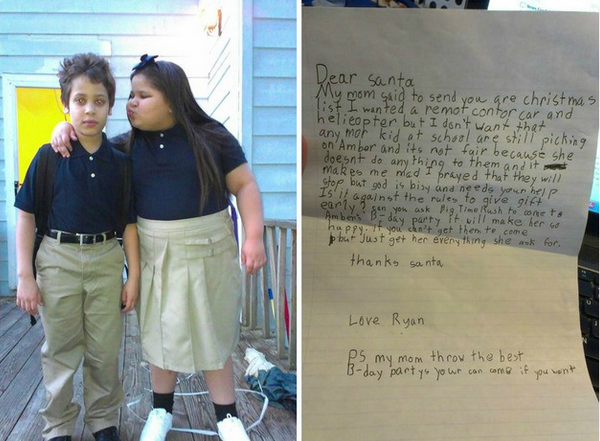 Dear santa
My mom said to send you are christmas
list I wanted a remot contor car and
helieopter but I don't want that
any mor kid at school are still picking
on Ambor and its not fair because she
doesnt do anything to them and it
makes me mad I prayed that they will
stop but god is bisy and needs your help
Is it against the rules to give gift
early? can you ask Big Time Rush to come to
Amber's B-day party It will make her so
happy. If you can't get them to come
but Just get her everything she ask for.
thanks santa
Love Ryan
PS my mom throw the best
B-day partys your can come if you want